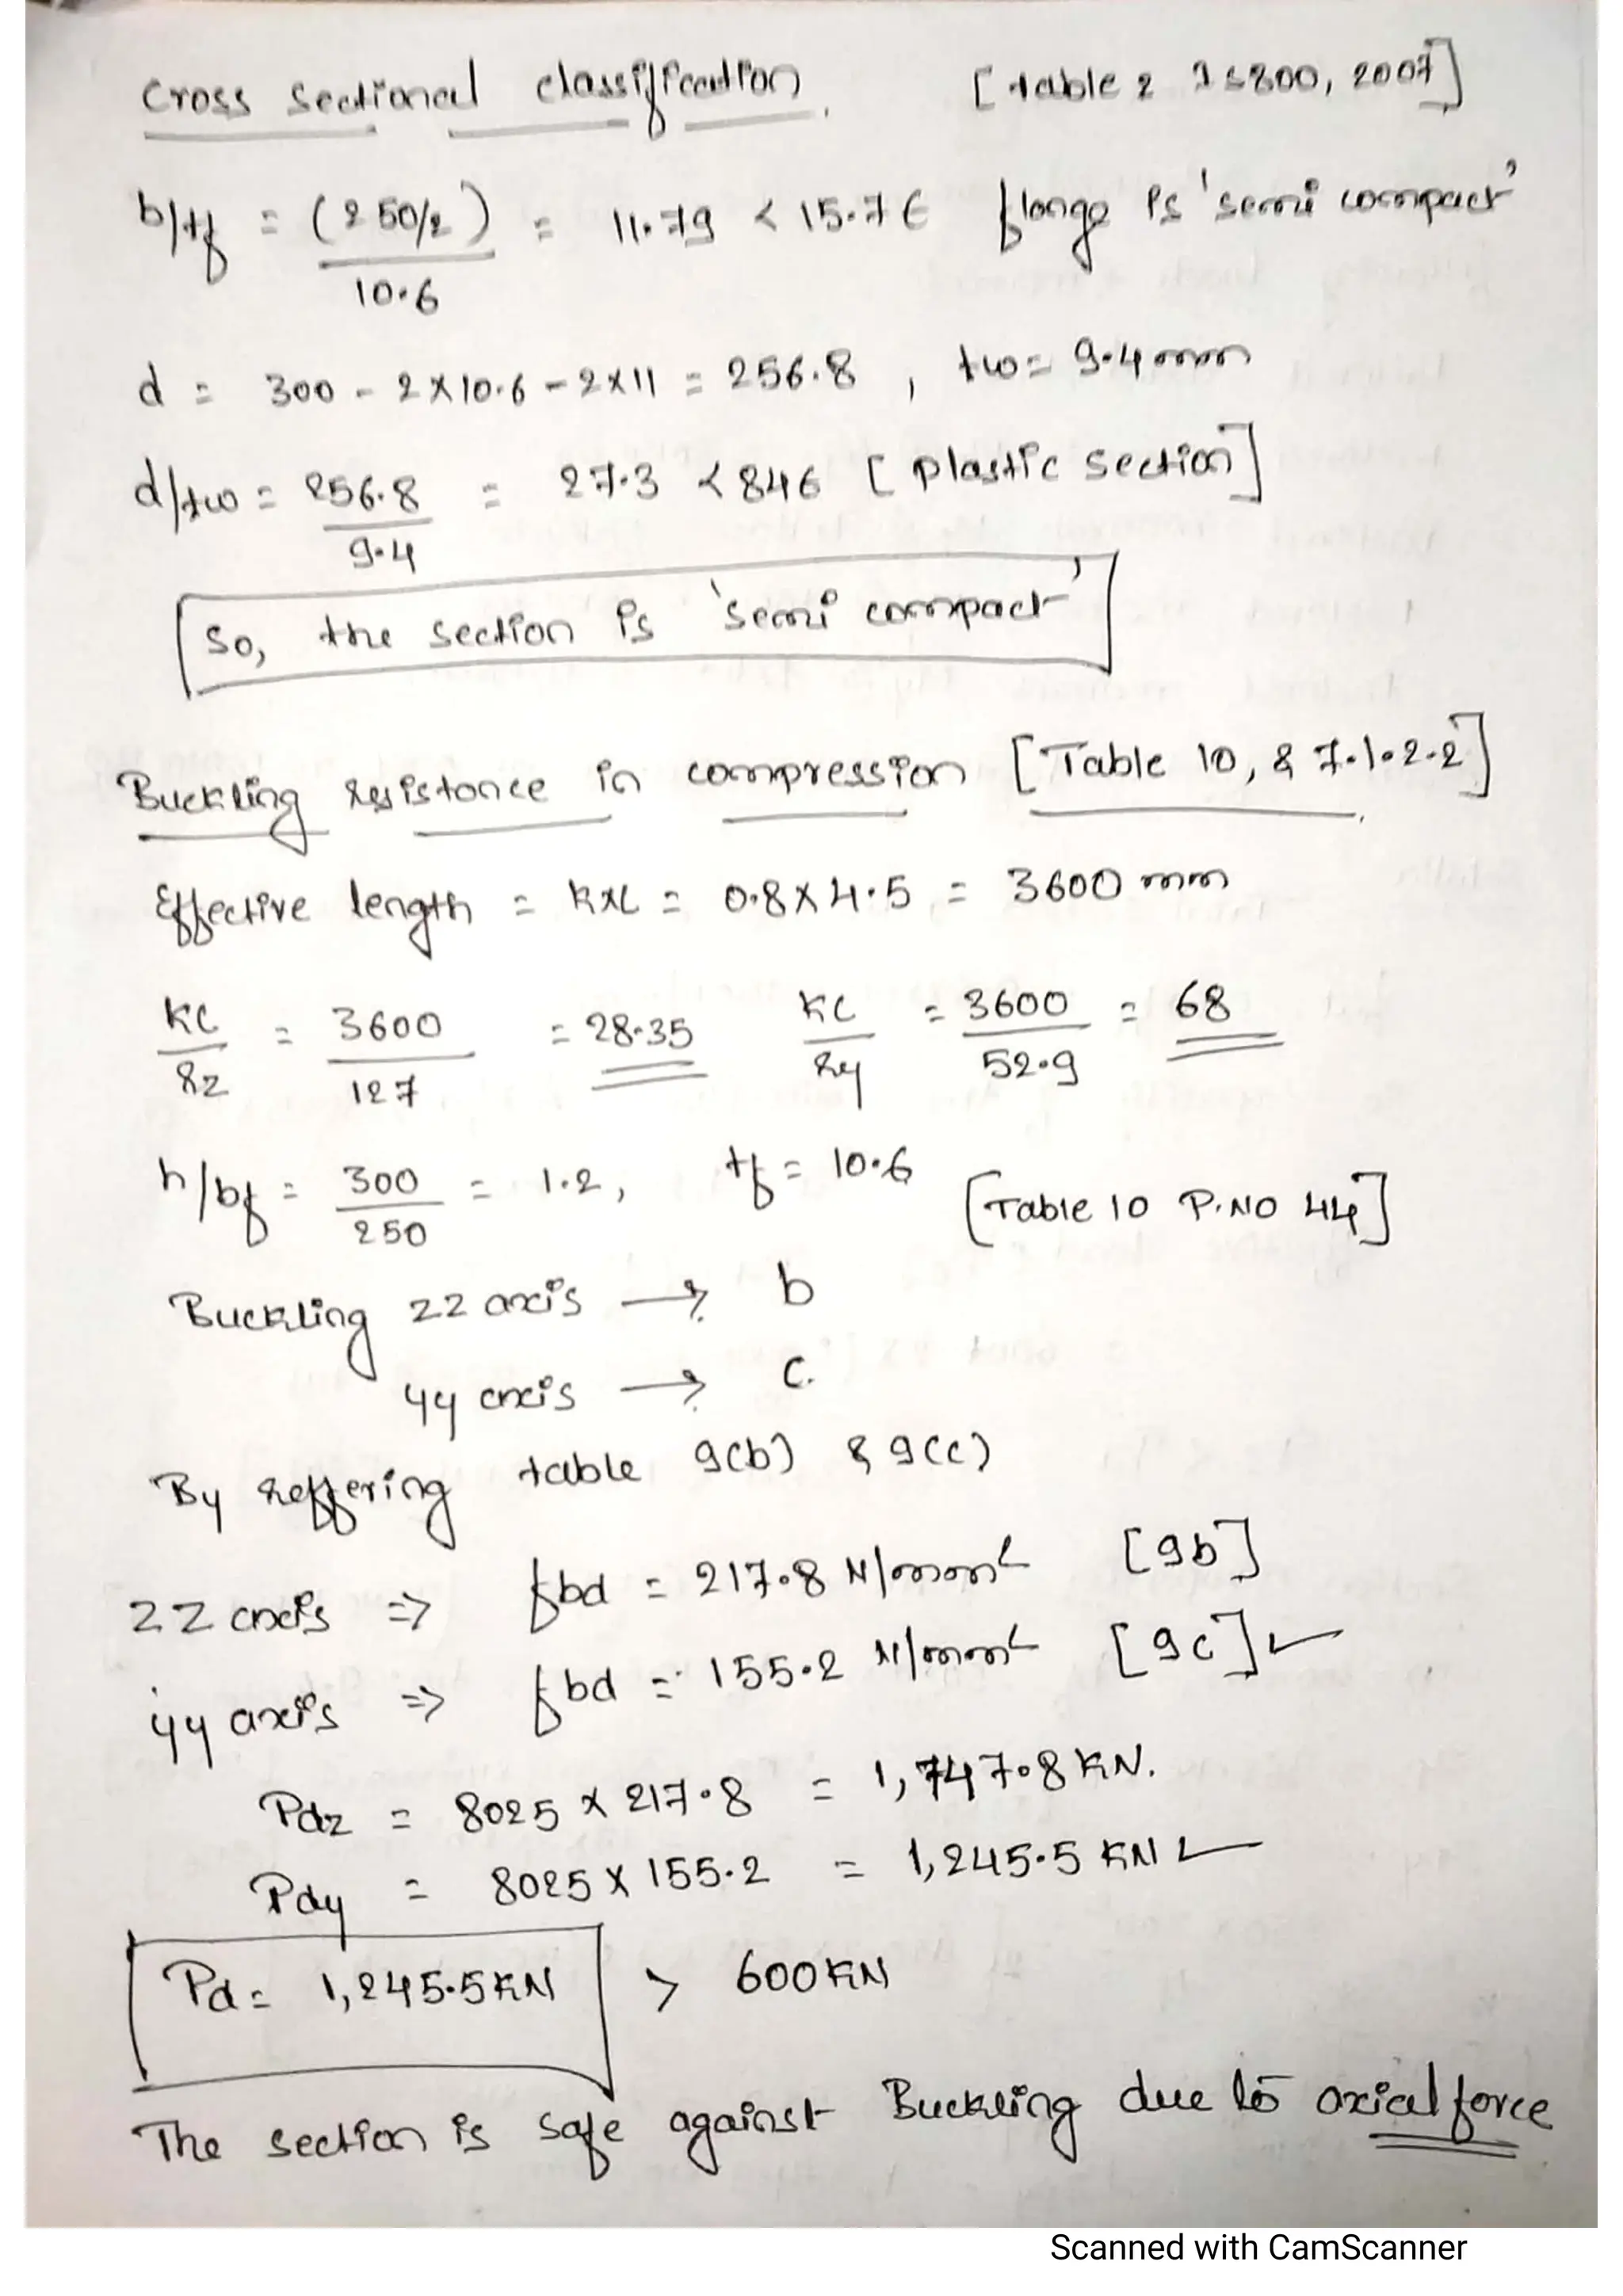 Cross sectional classification. [table 2 IS800, 2007]
b/tf = (250/2) / 10.6 = 11.79 < 15.7ϵ flange is 'semi compact'
d = 300 - 2x10.6 - 2x11 = 256.8 , tw = 9.4mm
d/tw = 256.8 / 9.4 = 27.3 < 84ϵ [plastic section]
So, the section is 'semi compact'
Buckling resistance in compression [Table 10, & 7.1.2.2]
Effective length = KxL = 0.8 x 4.5 = 3600 mm
KL/rz = 3600/127 = 28.35 KL/ry = 3600/52.9 = 68
h/bf = 300/250 = 1.2, tf = 10.6 [Table 10 P.NO 44]
Buckling zz axis → b
yy axis → c.
By reffering table 9(b) & 9(c)
zz axis ⇒ fbd = 217.8 N/mm² [9b]
yy axis ⇒ fbd = 155.2 N/mm² [9c] ✓
Pdz = 8025 x 217.8 = 1,747.8 KN.
Pdy = 8025 x 155.2 = 1,245.5 KN ✓
Pd = 1,245.5KN > 600KN
The section is safe against Buckling due to axial force
Scanned with CamScanner